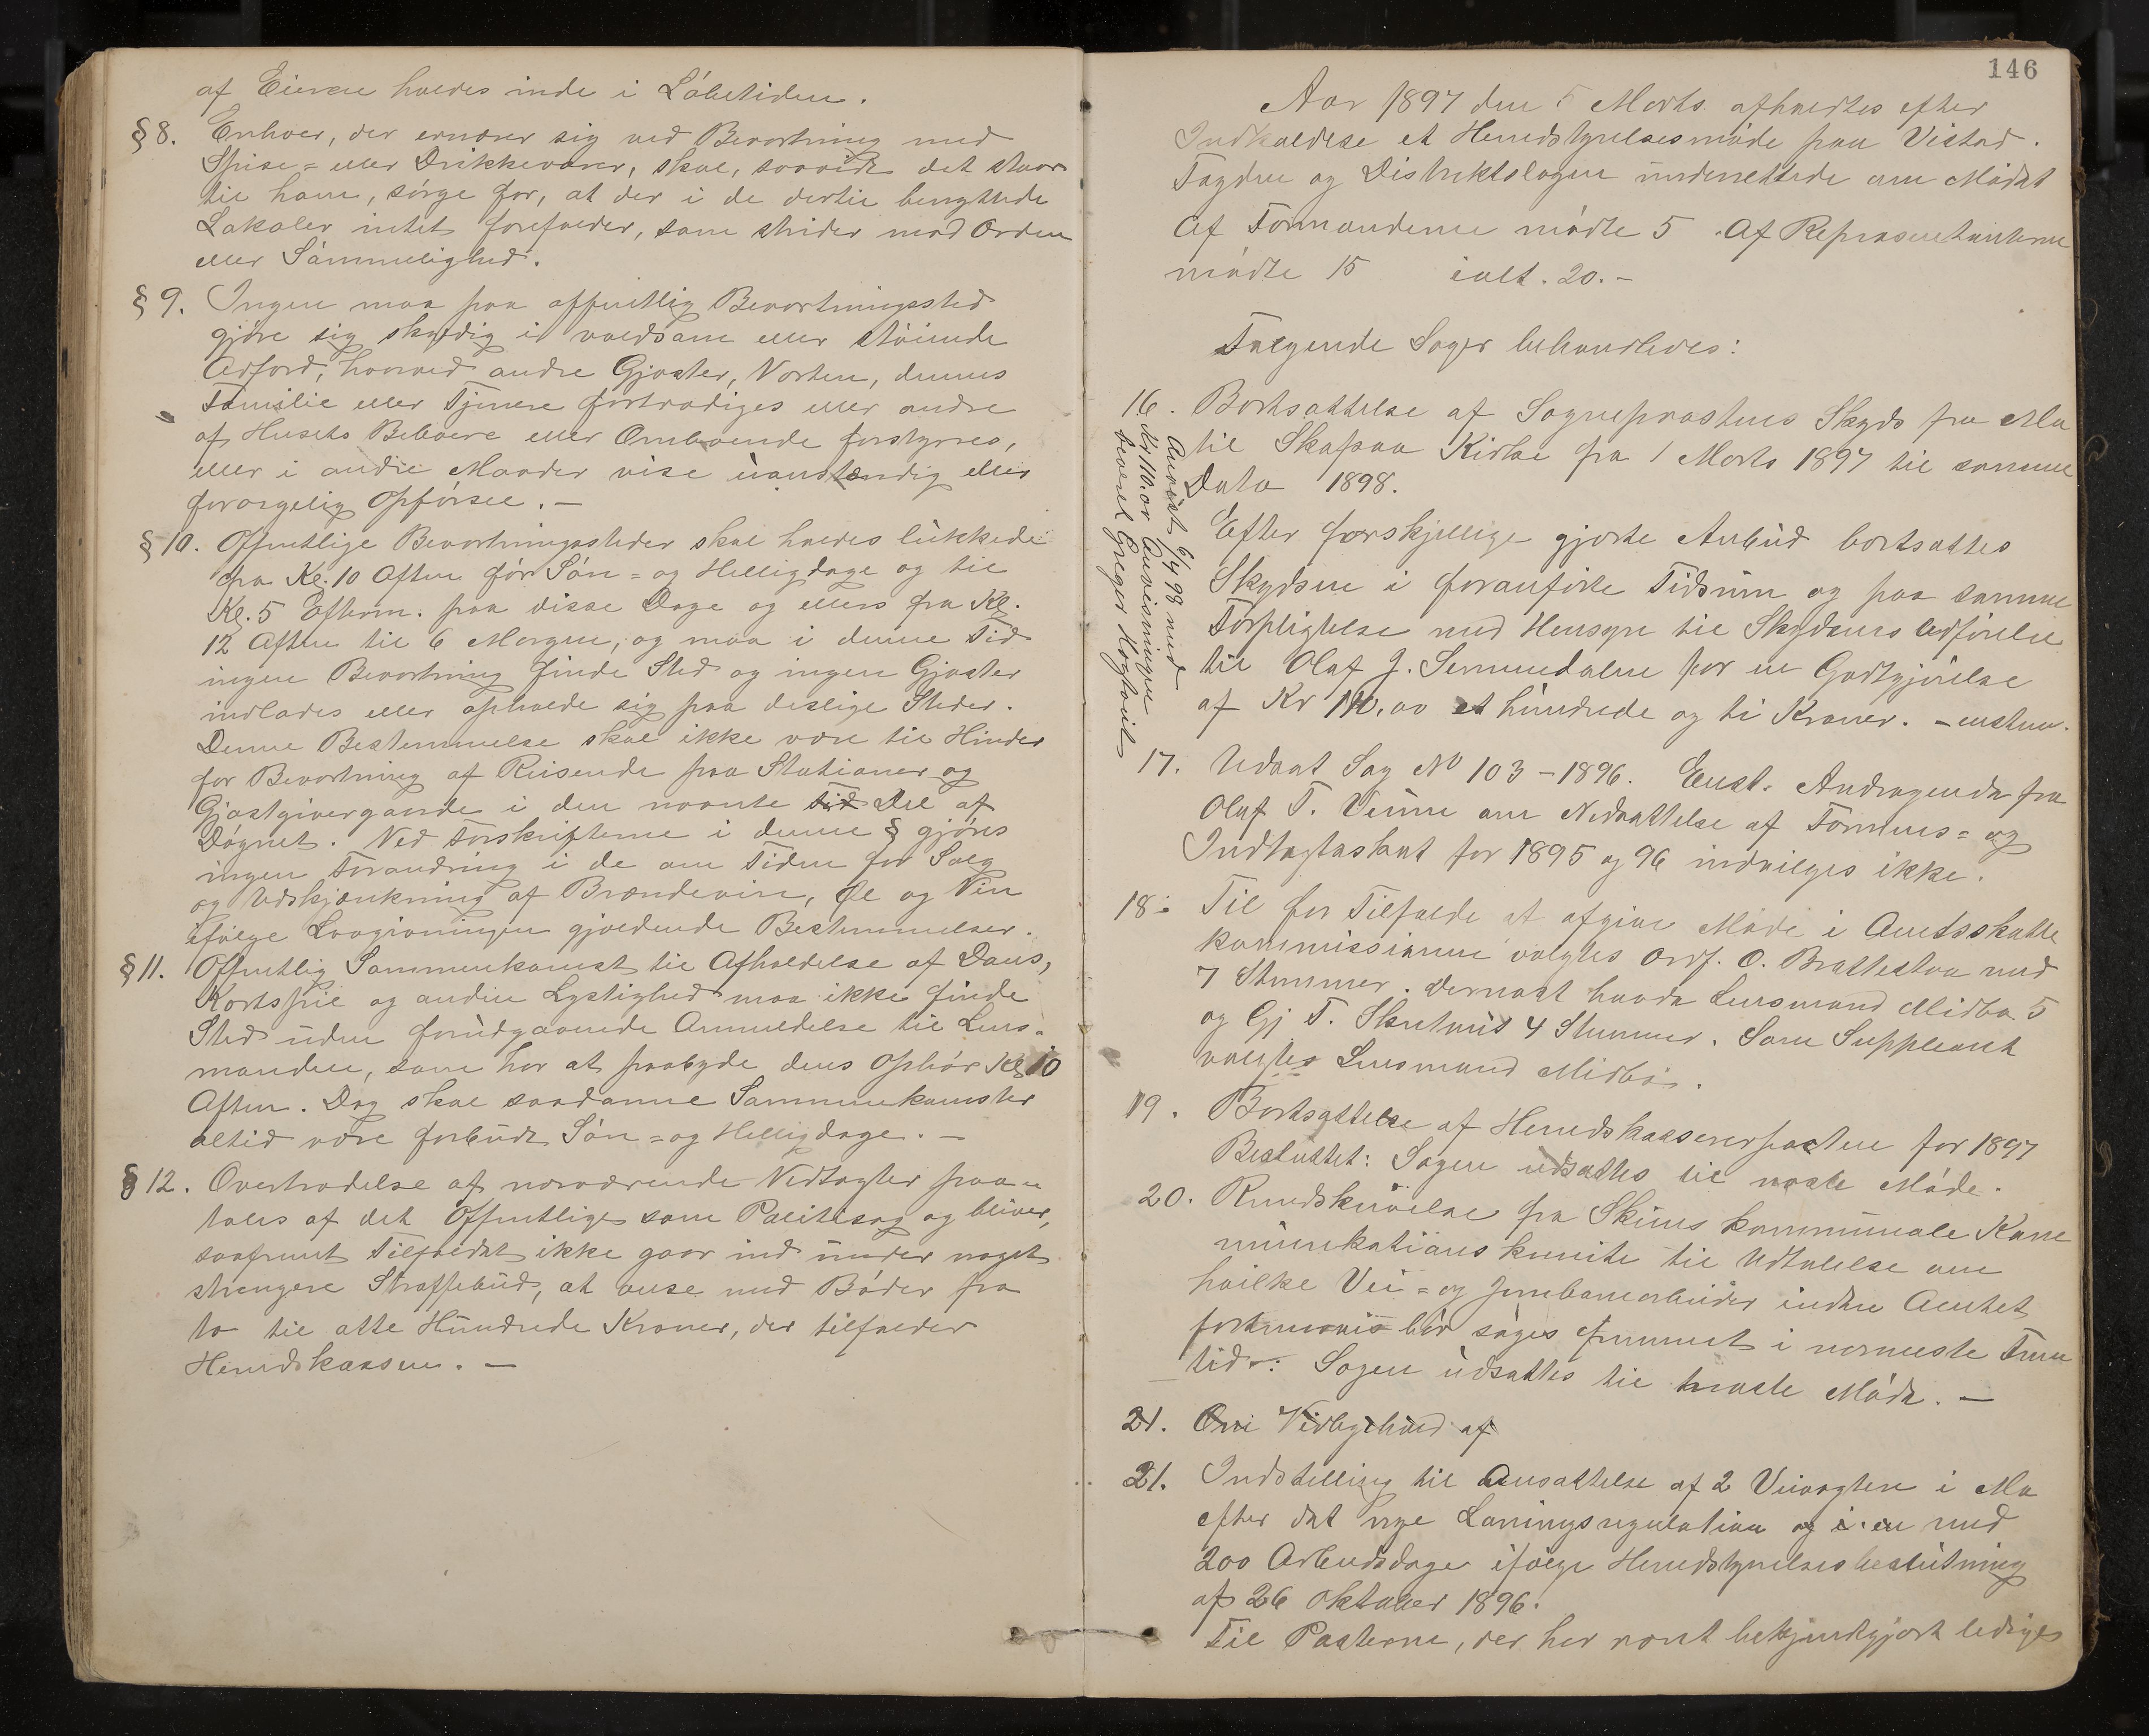 af Eieren holdes inde i Løbetiden.
§ 8. Enhver, der ernærer sig ved Beværtning med
Spise- eller Drikkevarer, skal, saavidt det staar
til ham, sørge for, at der i de dertil benyttede
Lokaler intet forefalder, som strider mod Orden
eller Sømmelighed.
§ 9. Ingen maa paa offentlig Beværtningssted
gjøre sig skyldig i voldsom eller støiende
Adfærd, hvorved andre Gjæster, Værten, dennes
Familie eller Tjenere fortrædiges eller andre
af Husets Beboere eller Omboende forstyrres,
eller i andre Maader vise uanstændig eller
forargelig Opførsel. -
§ 10. Offentlige Beværtningssteder skal holdes lukkede
fra Kl. 10 Aften før Søn- og Helligdage og til
Kl. 5 Efterm. paa disse Dage og ellers fra Kl.
12 Aften til 6 Morgen, og maa i denne Tid
ingen Beværtning finde Sted og ingen Gjæster
indlades eller opholde sig paa deslige Steder.
Denne Bestemmelse skal ikke være til Hinder
for Beværtning af Reisende paa Stationer og
Gjæstgivergaarde i den nævnte Tid Del af
Døgnet. Ved Forskrifterne i denne § gjøres
ingen Forandring i de om Tiden for Salg
og Udskjænkning af Brændevin, Øl og Vin
ifølge Lovgivningen gjældende Bestemmelser.
§ 11. Offentlig Sammenkomst til Afholdelse af Dans,
Kortspil og anden Lystighed maa ikke finde
Sted uden forudgaaende Anmeldelse til Lens-
manden, som har at paabyde dens Ophør Kl 10
Aften. Dog skal saadanne Sammenkomster
altid være forbudt Søn- og Helligdage. -
§ 12. Overtrædelse af nærværende Vedtægter paa-
tales af det Offentlige som Politisag og bliver,
saafremt Tilfældet ikke gaar ind under noget
strengere Straffebud, at anse med Bøder fra
to til otte Hundrede Kroner, der tilfalder
Herredskassen. -
146
Aar 1897 den 5 Marts afholdtes efter
Indkaldelse et Herredstyrelsesmøde paa Vistad.
Fogden og Distriktslægen underrettede om Mødet
Af Formændene mødte 5. Af Repræsentanterne
mødte 15 ialt. 20. -
Følgende Sager behandledes:
16. Bortsættelse af Sogneprestens Skyds fra Mo
til Skafsaa Kirke fra 1 Marts 1897 til samme
Dato 1898.
Efter forskjellige gjorte Anbud bortsattes
Skydsen i foranførte Tidsrum og paa samme
Forpligtelse med Hensyn til Skydsens Udførelse
til Olaf J. Semmendalen for en Godtgjørelse
af Kr 110,00 et hundrede og ti Kroner. - enstem.
Anvist 6/4 98 med
Kr 110.00 Anvisningen
17. Udsat Sag No 103 - 1896. Enst. Andragende fra
Olaf T. Vinne om Nedsættelse af Formues- og
Indtægtsskat for 1895 og 96 indvilges ikke.
18. Til for Tilfælde at afgive Møde i Amtsskatte
kommissionen valgtes Ordf. O. Brattestaa med
7 Stemmer. Dernæst havde Lensmand Midbø 5
og Gj T. 4 Stemmer. Som Suppleant
valgtes Lensmand Midbø.
19. Bortsættelse af Herredskassererposten for 1897
Besluttet: Sagen udsattes til næste Møde.
20. Rundskrivelse fra Skiens kommunale Kom
munikations komite til Udtalelse om
hvilke Vei- og Jernbanearbeider inden Amtet
fortrinsvis bør søges fremmet i nærmeste Frem
tid -: Sagen udsattes til næste Møde. -
21. Om Vedlighold af
21. Indstilling til Ansættelse af 2 Veivogtere i Mo
efter det nye Lønningsregulativ og i en med
200 Arbeidsdage ifølge Herredstyrelsesbeslutning
af 26 Oktober 1896.
Til Posterne, der har været bekjendtgjort ledige